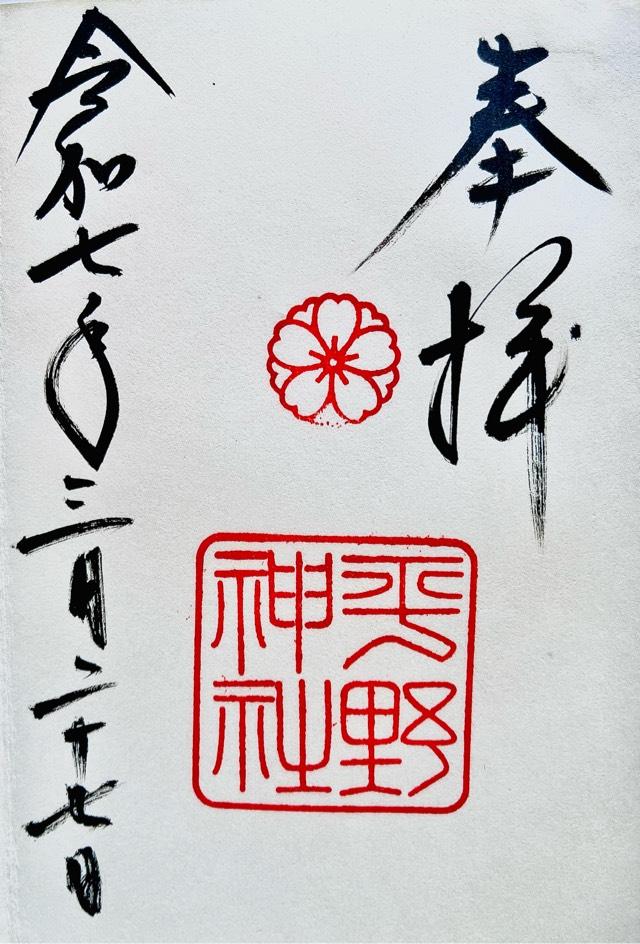 奉拝
平野
神社
令和七年三月二十七日